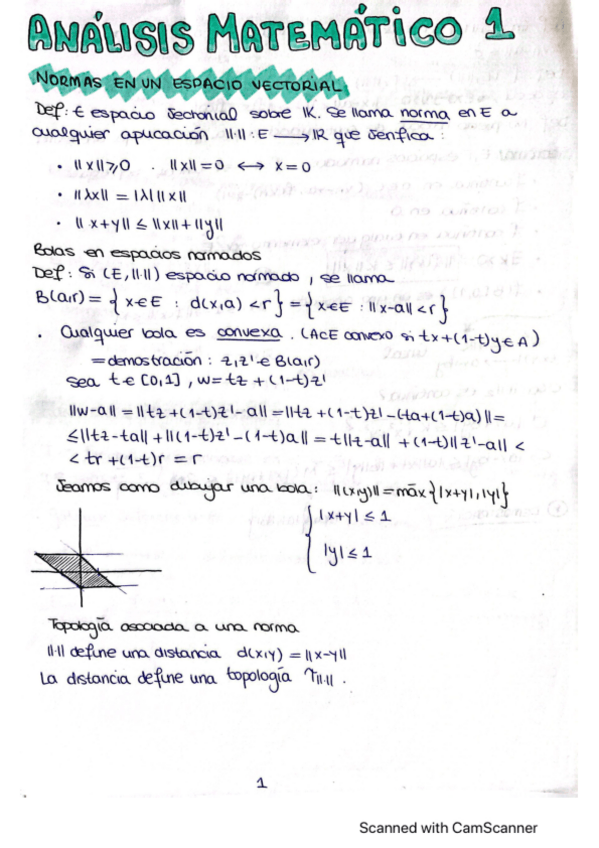 ANÁLISIS MATEMÁTICO 1
NORMAS EN UN ESPACIO VECTORIAL
Def: E espacio vectorial sobre IK. Se llama norma en E a
cualquier aplicación ||·|| : E ⟶ IR que verifica :
· ||x|| ≥ 0 . ||x|| = 0 ⟷ x = 0
· ||λx|| = |λ| ||x||
· || x+y || ≤ ||x|| + ||y||
Bolas en espacios normados
Def: Si (E, ||·||) espacio normado, se llama
B(a,r) = { x ∈ E : d(x,a) < r } = { x ∈ E : ||x-a|| < r }
· Cualquier bola es convexa. (A⊂E convexo si tx+(1-t)y ∈ A)
= demostración : z, z' ∈ B(a,r)
sea t ∈ [0,1], w = tz + (1-t)z'
||w-a|| = ||tz + (1-t)z' - a|| = ||tz + (1-t)z' - (ta+(1-t)a)|| =
≤ ||tz - ta|| + ||(1-t)z' - (1-t)a|| = t||z-a|| + (1-t)||z'-a|| <
< tr + (1-t)r = r
Veamos como dibujar una bola : ||(x,y)|| = máx {|x+y|, |y|}
{ |x+y| ≤ 1
|y| ≤ 1
Topología asociada a una norma
||·|| define una distancia d(x,y) = ||x-y||
La distancia define una topología τ||·|| .
1
Scanned with CamScanner